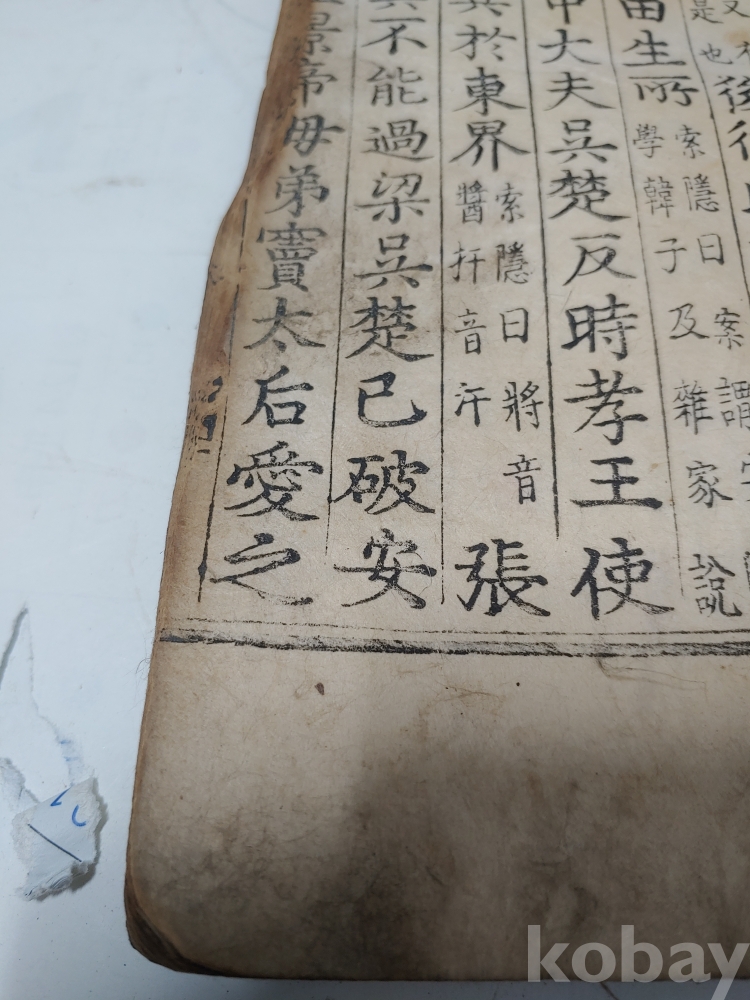 是也
後
田生所
索隱曰案謂
學韓子及雜家說
中大夫吳楚反時孝王使
兵於東界
索隱曰將音
醬扞音汗
張
不能過梁吳楚已破安
景帝母弟竇太后愛之
kobay